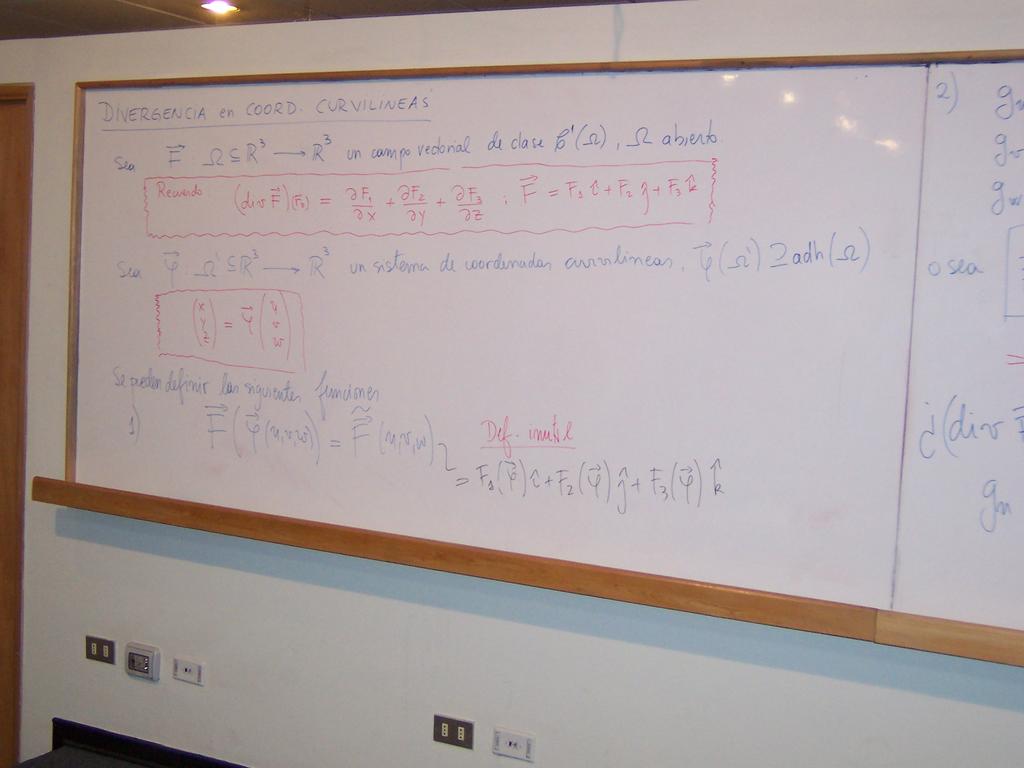 DIVERGENCIA en COORD. CURVILINEAS
Sea F⃗ : Ω ⊆ ℝ³ → ℝ³ un campo vectorial de clase 𝒞¹(Ω), Ω abierto.
Recuerdo (div F⃗)(r₀) = ∂F₁/∂x + ∂F₂/∂y + ∂F₃/∂z ; F⃗ = F₁ î + F₂ ĵ + F₃ k̂
Sea φ⃗ : Ω' ⊆ ℝ³ → ℝ³ un sistema de coordenadas curvilineas, φ⃗(Ω') ⊇ adh(Ω)
(x y z) = φ⃗ (u v w)
Se pueden definir las siguientes funciones
1) F⃗(φ⃗(u,v,w)) = F̃⃗(u,v,w)
Def. inutil
= F₁(φ⃗) î + F₂(φ⃗) ĵ + F₃(φ⃗) k̂
2) g
g
g
o sea
¿(div F
g